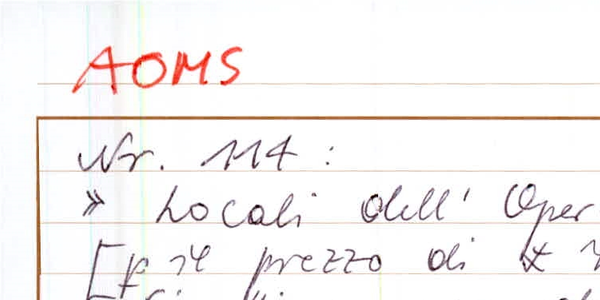 AOMS
Nr. 114 :
» Locali dell' Oper
[p il prezzo di